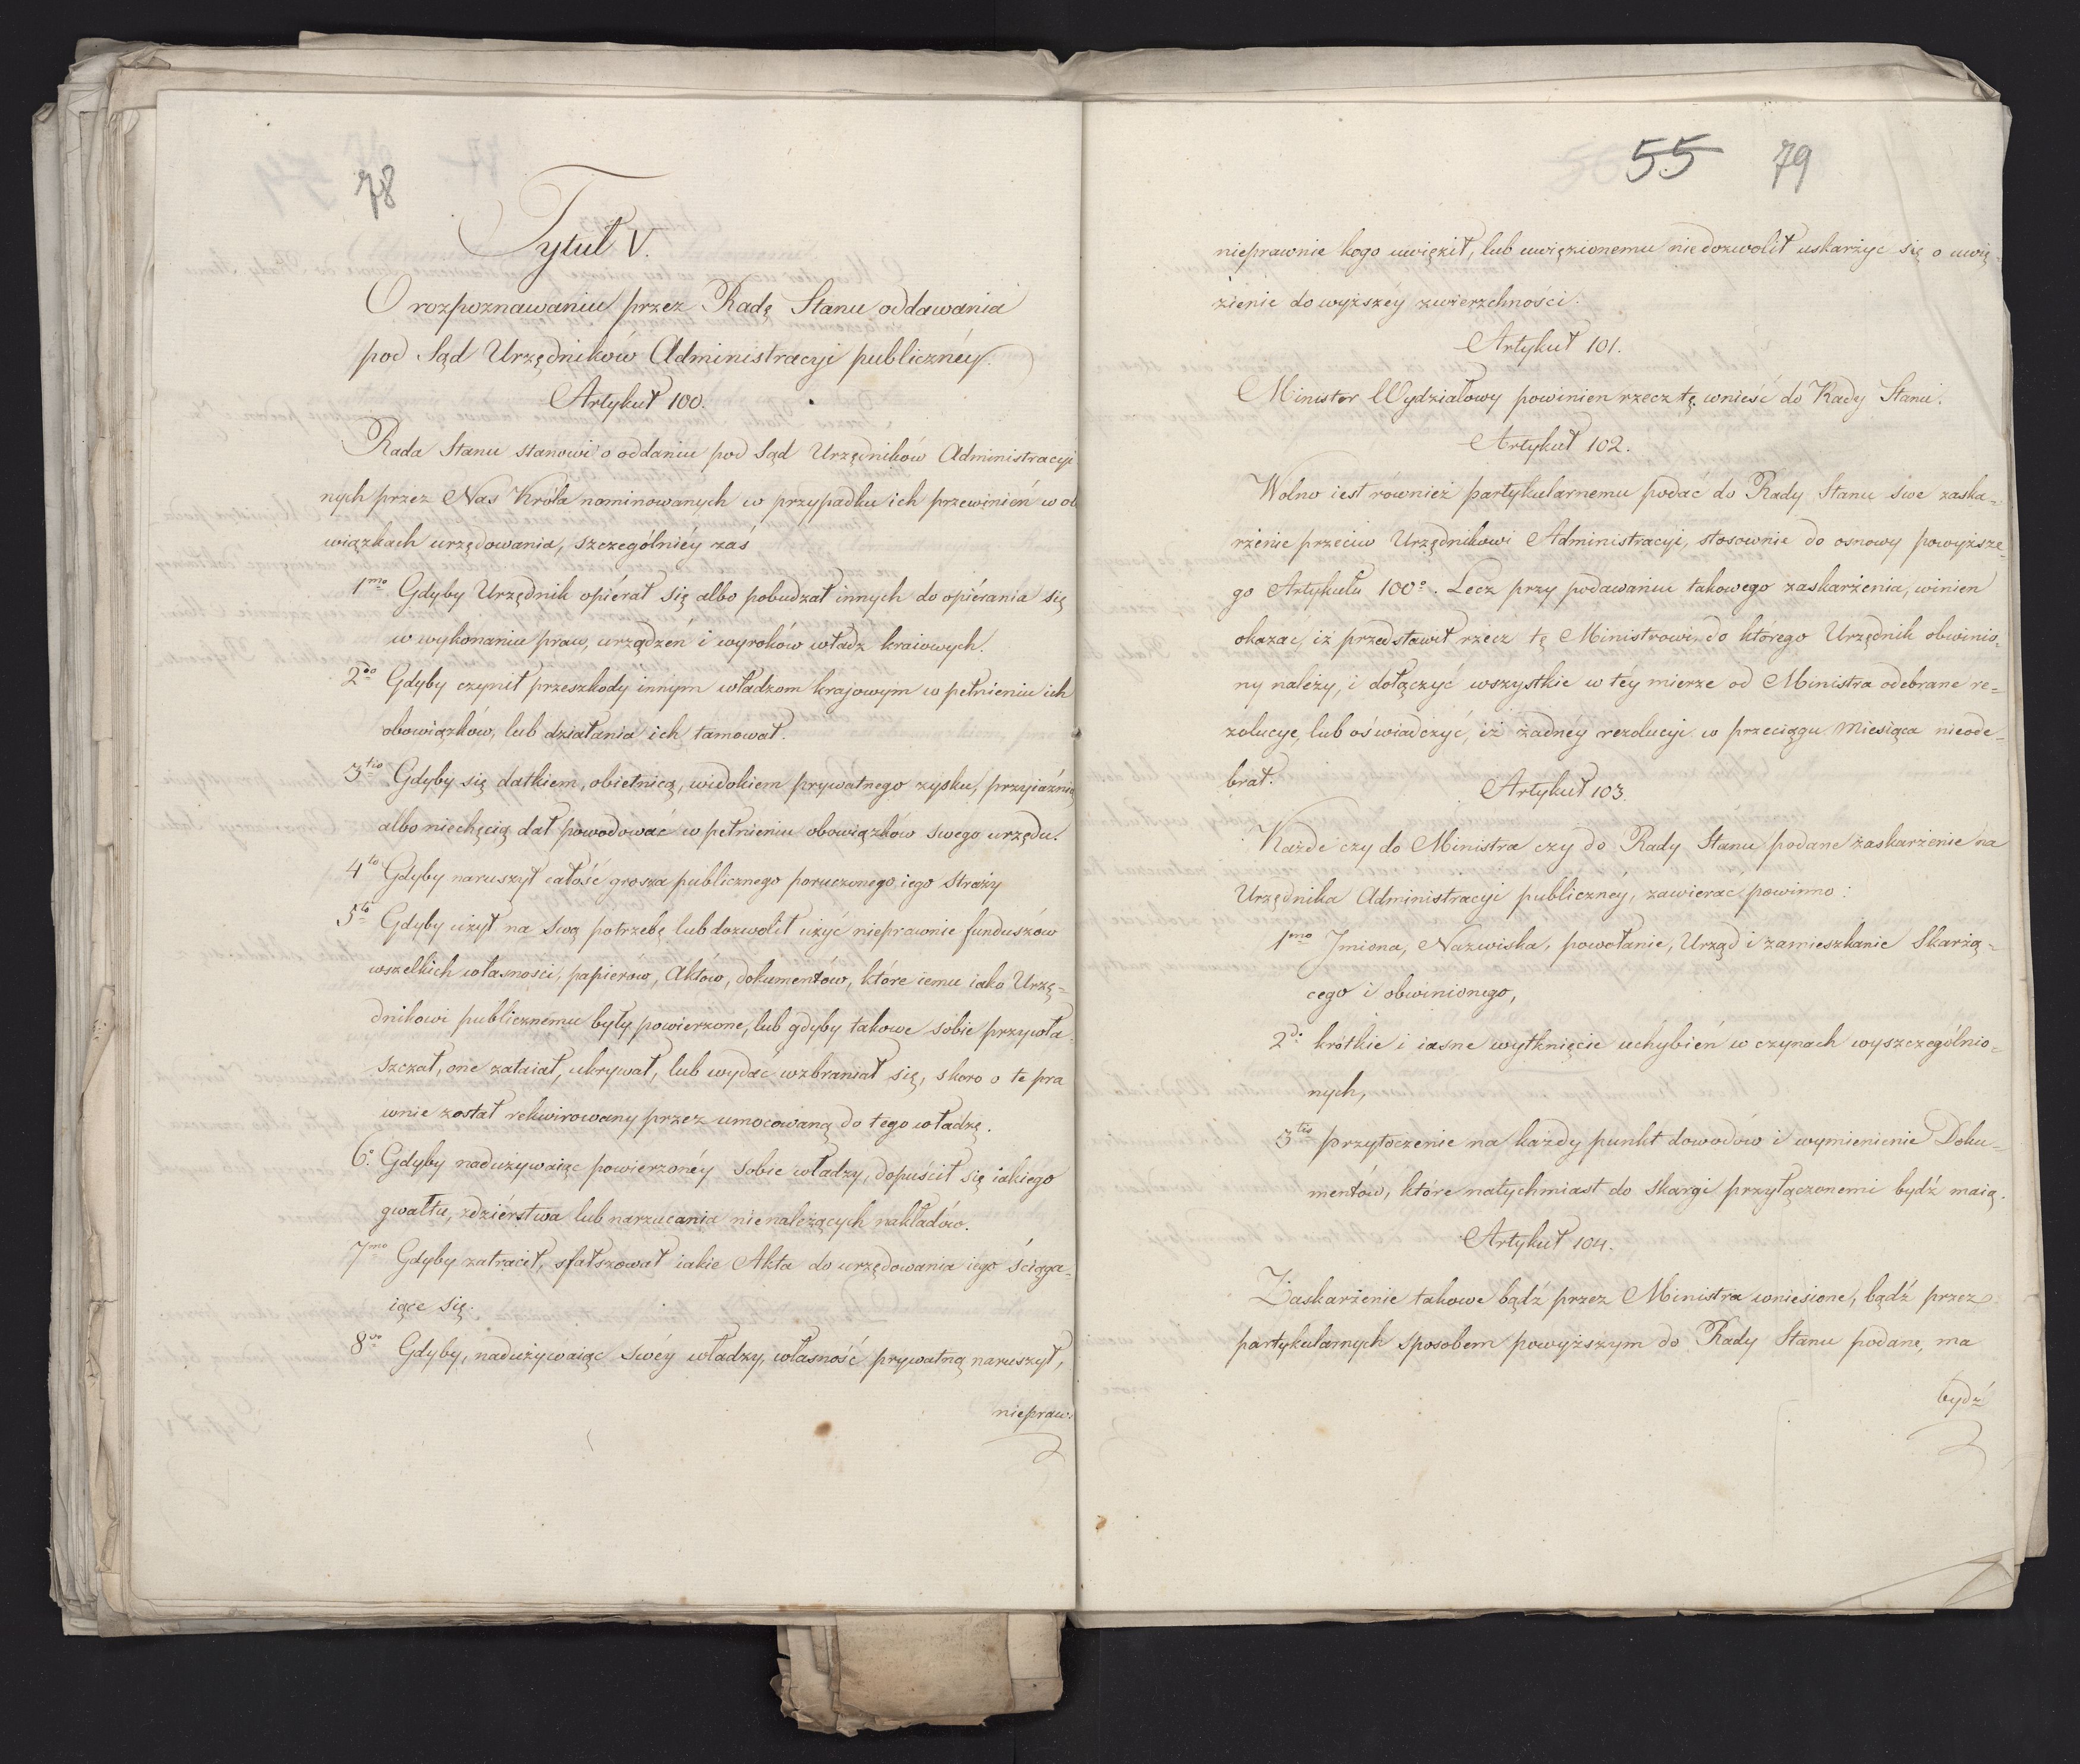 78
Tytuł V.
O rozpoznawaniu przez Radę Stanu oddawania
pod Sąd Urzędników Administracyi publicznéy.
Artykuł 100.
Rada Stanu stanowi o oddaniu pod Sąd Urzędników Administracyi
nych przez Nas Króla nominowanych w przypadku ich przewinień w ob
wiązkach urzędowania, szczególniéy zaś
1mo Gdyby Urzędnik opiérał się albo pobudzał innych do opiérania się
w wykonaniu praw, urządzeń i wyroków władz kraiowych.
2do Gdyby czynił przeszkody innym władzom krajowym w pełnieniu ich
obowiązków, lub działania ich tamował.
3tio Gdyby się datkiem, obietnicą, widokiem prywatnego zysku, przyiaźnią
albo niechęcią dał powodować w pełnieniu obowiązków swego urzędu.
4to Gdyby naruszył całość grosza publicznego poruczonego iego straży
5to Gdyby użył na swą potrzebę lub dozwolił użyć nieprawnie funduszów
wszelkich własności, papierów, Aktów, dokumentów, które iemu iako Urzę-
dnikowi publicznemu były powierzone, lub gdyby takowe sobie przywła-
szczał, one zataiał, ukrywał, lub wydać wzbraniał się, skoro o te pra
wnie został rekwirowany przez umocowaną do tego władzę.
6o Gdyby nadużywaiąc powierzonéy sobie władzy, dopuścił się iakiego
gwałtu, zdziérstwa lub narzucania nienależących nakładów.
7mo Gdyby zatracił, sfałszował iakie Akta do urzędowania iego ściąga-
iące się.
8vo Gdyby, nadużywaiąc swéy władzy, własność prywatną naruszył,
niepraw:
55 79
nieprawnie kogo uwięził, lub uwięzionemu niedozwolił uskarżyć się o uwię-
zienie do wyższéy zwierzchności.
Artykuł 101.
Minister Wydziałowy powinien rzecz tę wnieść do Rady Stanu.
Artykuł 102.
Wolno iest również partykularnemu podać do Rady Stanu swe zaska-
rżenie przeciw Urzędnikowi Administracyi, stosownie do osnowy powyższe-
go Artykułu 100o. Lecz przy podawaniu takowego zaskarżenia, winien
okazać, iż przedstawił rzecz tę Ministrowi do którego Urzędnik obwinio-
ny należy, i dołączyć wszystkie w téy mierze od Ministra odebrane re-
zolucye, lub oświadczyć, iż żadnéy rezolucyi w przeciągu Miesiąca nieode-
brał.
Artykuł 103.
Każde czy do Ministra czy do Rady Stanu podane zaskarżenie na
Urzędnika Administracyi publicznéy, zawierać powinno:
1mo Jmiona, Nazwiska, powołanie, Urząd i zamieszkanie Skarżą-
cego i obwinionego,
2do krótkie i iasne wytknięcie uchybień w czynach wyszczególnio-
nych,
3tio przytoczenie na każdy punkt dowodów i wymienienie Doku-
mentów, które natychmiast do skargi przyłączonemi bydź maią.
Artykuł 104.
Zaskarżenie takowe bądź przez Ministra wniesione, bądź przez
partykularnych sposobem powyższym do Rady Stanu podane, ma
bydź